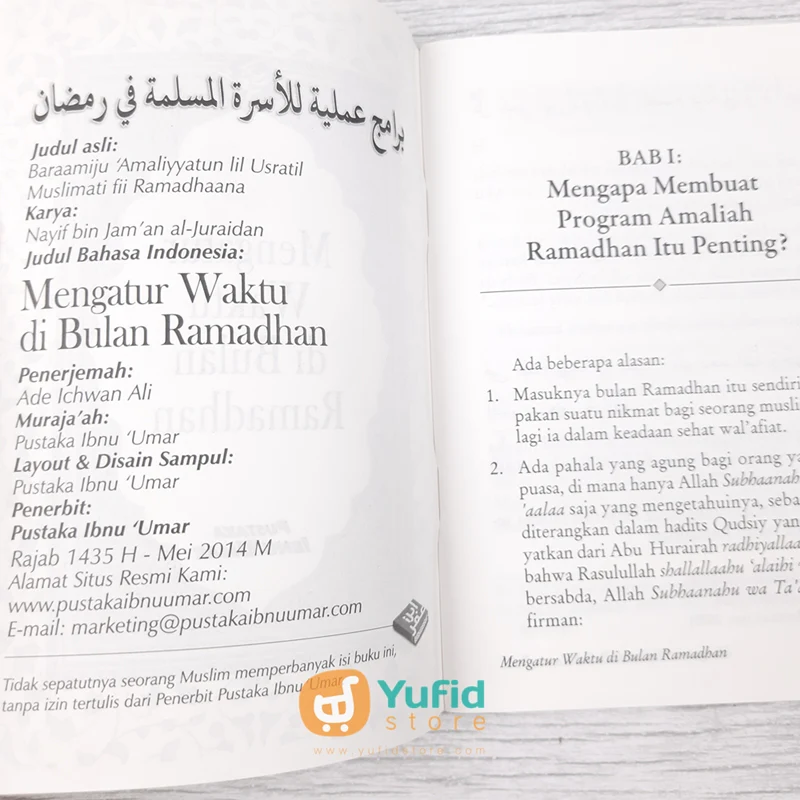 برامج عملية للأسرة المسلمة في رمضان
Judul asli:
Baraamiju 'Amaliyyatun lil Usratil
Muslimati fii Ramadhaana
Karya:
Nayif bin Jam'an al-Juraidan
Judul Bahasa Indonesia:
Mengatur Waktu
di Bulan Ramadhan
Penerjemah:
Ade Ichwan Ali
Muraja'ah:
Pustaka Ibnu 'Umar
Layout & Disain Sampul:
Pustaka Ibnu 'Umar
Penerbit:
Pustaka Ibnu 'Umar
Rajab 1435 H - Mei 2014 M
Alamat Situs Resmi Kami:
www.pustakaibnuumar.com
E-mail: marketing@pustakaibnuumar.com
Tidak sepatutnya seorang Muslim memperbanyak isi buku ini,
tanpa izin tertulis dari Penerbit Pustaka Ibnu 'Umar
BAB I:
Mengapa Membuat
Program Amaliah
Ramadhan Itu Penting?
Ada beberapa alasan:
1. Masuknya bulan Ramadhan itu sendiri
pakan suatu nikmat bagi seorang musli
lagi ia dalam keadaan sehat wal'afiat.
2. Ada pahala yang agung bagi orang ya
puasa, di mana hanya Allah Subhaanah
'aalaa saja yang mengetahuinya, seba
diterangkan dalam hadits Qudsiy yan
yatkan dari Abu Hurairah radhiyallaa
bahwa Rasulullah shallallaahu 'alaihi
bersabda, Allah Subhaanahu wa Ta'a
firman:
Mengatur Waktu di Bulan Ramadhan
Yufid
store
www.yufidstore.com